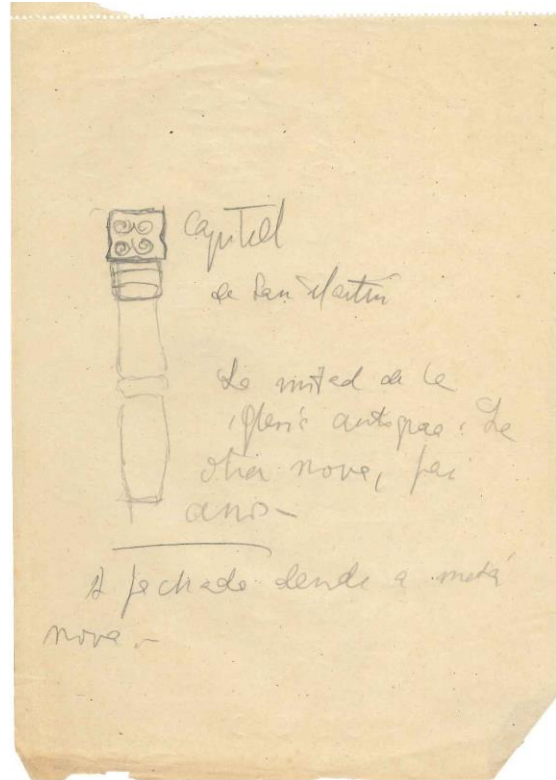 Capitel
de San Martín
La mitad de la
iglesia antigua. La
otra nova, fai
anos-
A fachada dende a metá
nova-